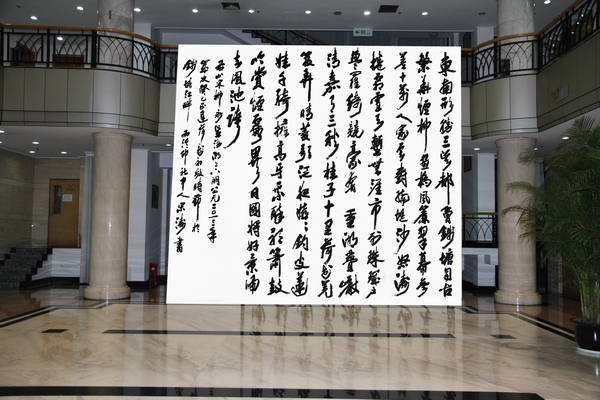 東南形勝三吳都會錢塘自古
繁華煙柳畫橋風簾翠幕參
差十萬人家雲樹繞堤沙怒濤
捲霜雪天塹無涯市列珠璣戶
盈羅綺競豪奢重湖疊巘
清嘉有三秋桂子十里荷花羌
管弄晴菱歌泛夜嬉嬉釣叟蓮
娃千騎擁高牙乘醉聽簫鼓
吟賞煙霞異日圖將好景歸
去鳳池誇
宋柳永望海潮公元二〇一三年
歲次癸巳
錢塘江畔西泠印社中人
書